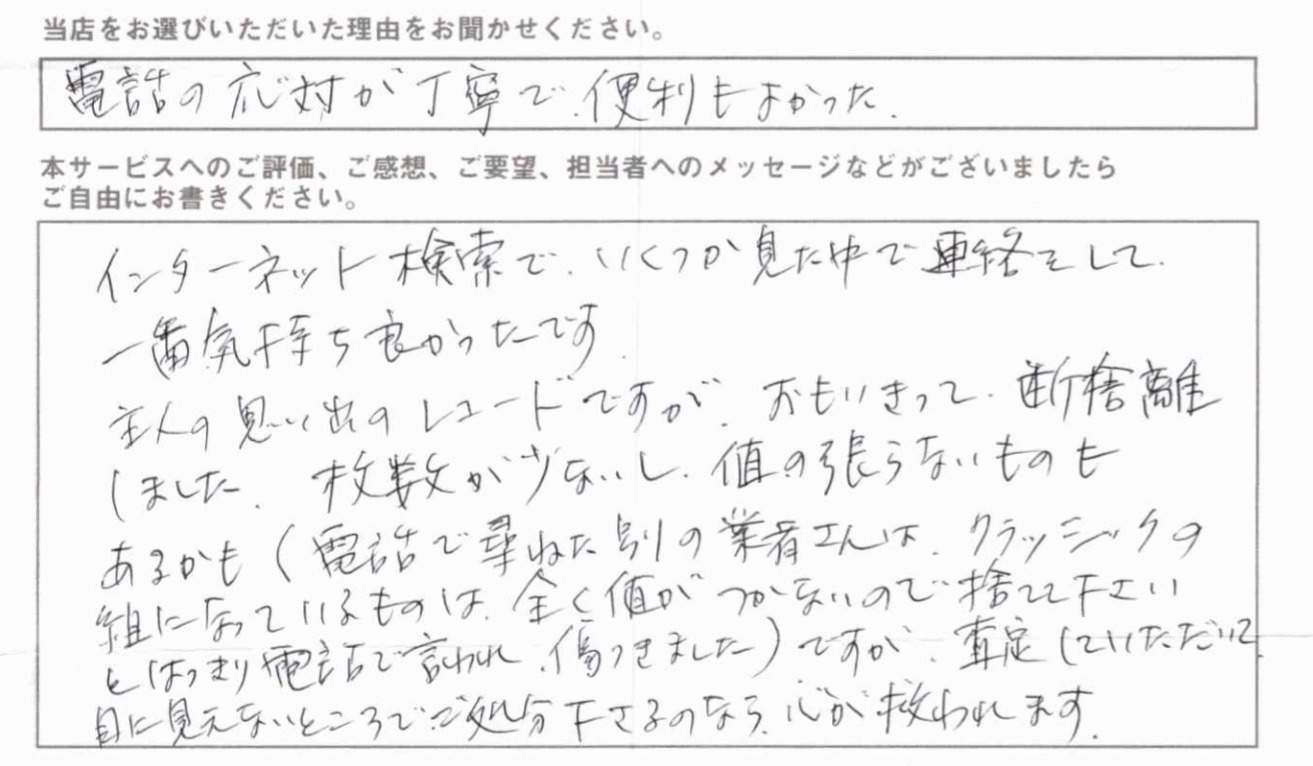 当店をお選びいただいた理由をお聞かせください。
電話の応対が丁寧で、便利もよかった。
本サービスへのご評価、ご感想、ご要望、担当者へのメッセージなどがございましたら
ご自由にお書きください。
インターネット検索で、いくつか見た中で連絡をして、
一番気持ち良かったです。
主人の思い出のレコードですが、おもいきって、断捨離
しました。枚数が少ないし、値の張らないものも
あるかも(電話で尋ねた別の業者さんは、クラッシックの
組になっているものは、全く値がつかないので捨てて下さい
とはっきり電話で言われ、傷つきました)ですが、査定していただいて、
目に見えないところでご処分下さるのなら、心が救われます。